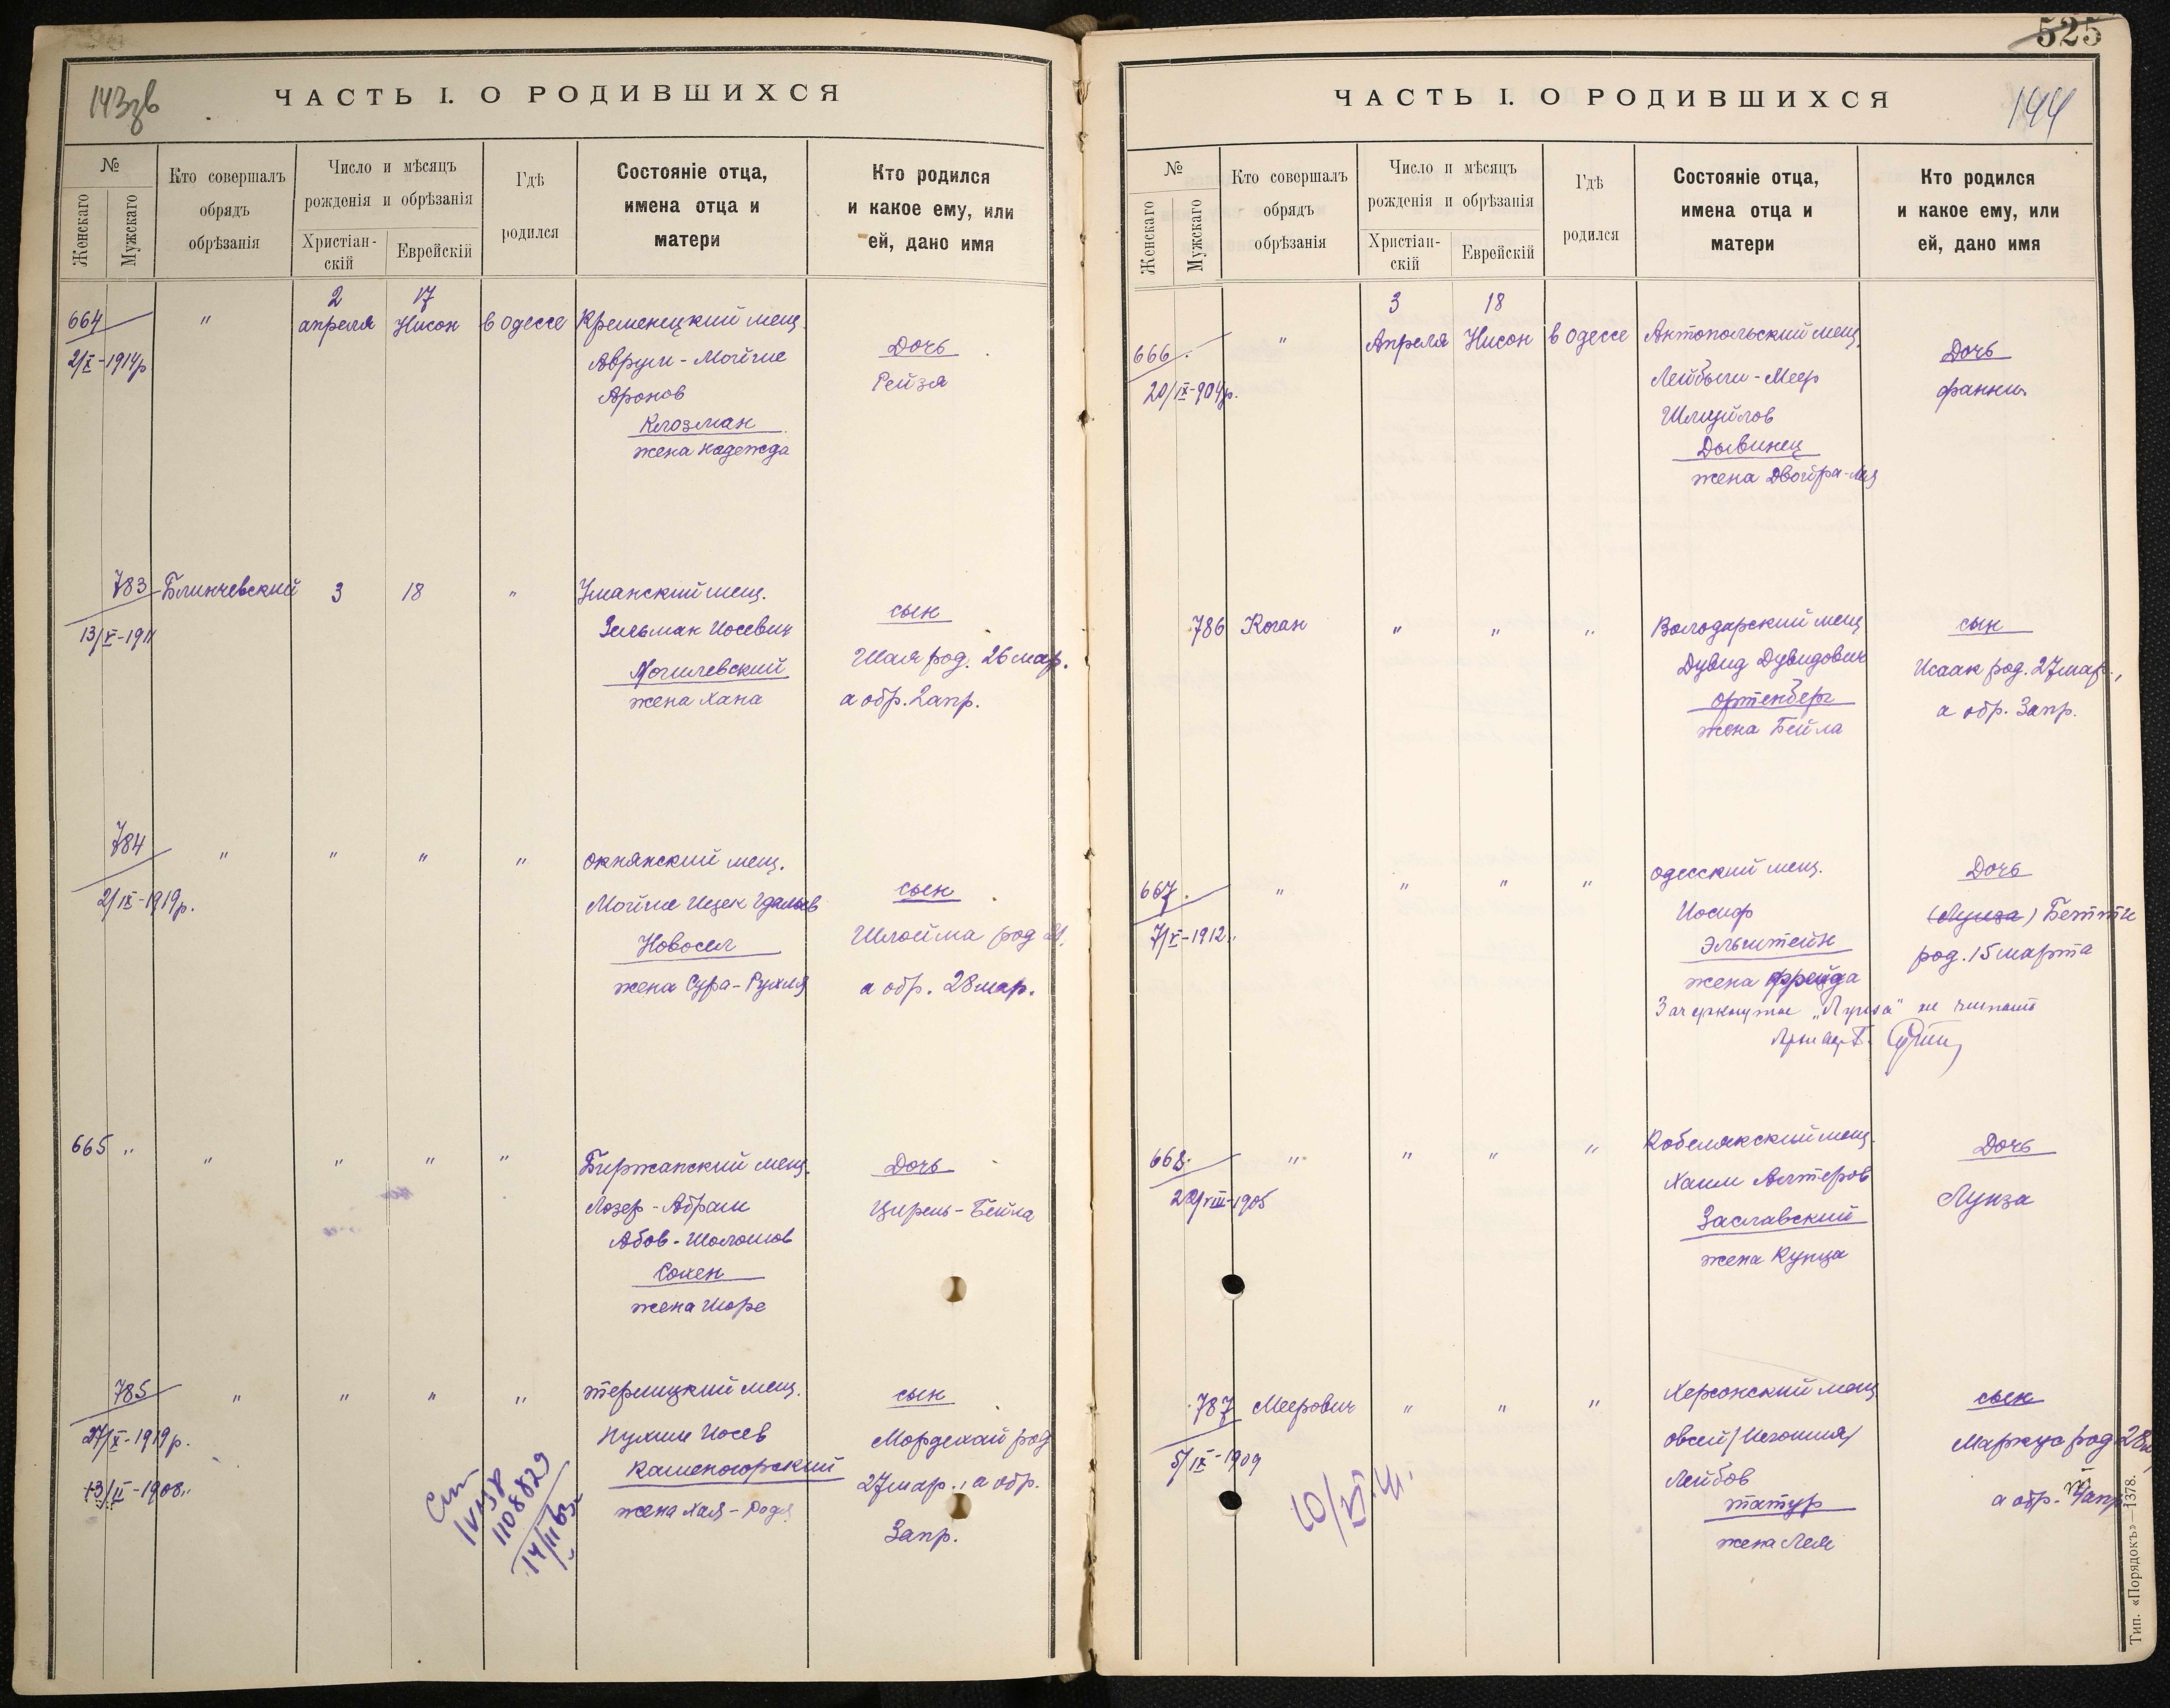 525
143зв
ЧАСТЬ I. О РОДИВШИХСЯ
№
Женскаго
Мужскаго
Кто совершалъ
обрядъ
обрѣзанія
Число и мѣсяцъ
рожденія и обрѣзанія
Христіан-
скій
Еврейскій
Гдѣ
родился
Состояніе отца,
имена отца и
матери
Кто родился
и какое ему, или
ей, дано имя
664 " 2 апреля 17 Нисон в Одессе Кременецкий мещ.
2/X-1914р
Аврум-Мойше
Аронов
Клозман
жена Надежда
Дочь
Рейзя
783 Блинчевский 3 18 " Уманский мещ.
13/V-1911
Зельман Иосевич
Могилевский
жена Хана
сын
Шая род. 26 мар.
а обр. 2 апр.
784 " " " " Окнянский мещ.
2/IX-1919р.
Мойше Ицек Гдальев
Новосел
жена Сура-Рухля
сын
Шлойма род 21.
а обр. 28 мар.
665 " " " " " Биржанский мещ.
Лозер-Абрам
Абов-Шоломов
Сокен
жена Шоре
Дочь
Цирель-Бейла
785 " " " " Терлицкий мещ.
27/X-1919р.
13/II-1908г.
Нухим Иосев
Каменогорский
жена Хая-Родя
сын
Мордехай род
27 мар., а обр.
3 апр.
1108829
14/II 63
144
ЧАСТЬ I. О РОДИВШИХСЯ
№
Женскаго
Мужскаго
Кто совершалъ
обрядъ
обрѣзанія
Число и мѣсяцъ
рожденія и обрѣзанія
Христіан-
скій
Еврейскій
Гдѣ
родился
Состояніе отца,
имена отца и
матери
Кто родился
и какое ему, или
ей, дано имя
666. " 3 Апреля 18 Нисон в Одессе Антопольский мещ.
20/IX-904р.
Лейбыш-Меер
Шмуйлов
Дывинец
жена Двойра-Лея
Дочь
Фанни.
786 Коган " " " Володарский мещ
Дувид Дувидович
Ортенберг
жена Бейла
сын
Исаак род. 27 мар.,
а обр. 3 апр.
667. " " " " Одесский мещ.
7/V-1912г.
Иосиф
Эльштейн
жена Фрейда
Дочь
(Луиза) Бетти
род. 15 марта
Зачеркнутое „Луиза" не читать
668. " " " " Кобелякский мещ.
20/VIII-1905
Хаим Алтеров
Заславский
жена Кунца
Дочь
Луиза
787 Меерович " " " Херсонский мещ
5/IX-1909
Овсей/Иегошия/
Лейбов
Татур
жена Лея
сын
Маркус род 28 м,
а обр. 4 апр
Тип. «Порядокъ»—1378.